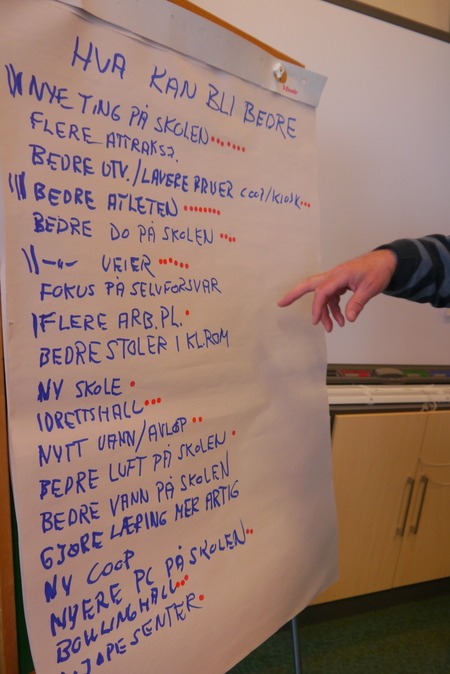 HVA KAN BLI BEDRE
NYE TING PÅ SKOLEN
FLERE ATTRAKSJ.
BEDRE UTV./LAVERE PRISER COOP/KIOSK
BEDRE ATLETEN
BEDRE DO PÅ SKOLEN
-"- VEIER
FOKUS PÅ SELVFORSVAR
FLERE ARB.PL.
BEDRE STOLER I KLROM
NY SKOLE
IDRETTSHALL
NYTT VANN/AVLØP
BEDRE LUFT PÅ SKOLEN
BEDRE VANN PÅ SKOLEN
GJØRE LÆRING MER ARTIG
NY COOP
NYERE PC PÅ SKOLEN
BOWLINGHALL
KJØPESENTER